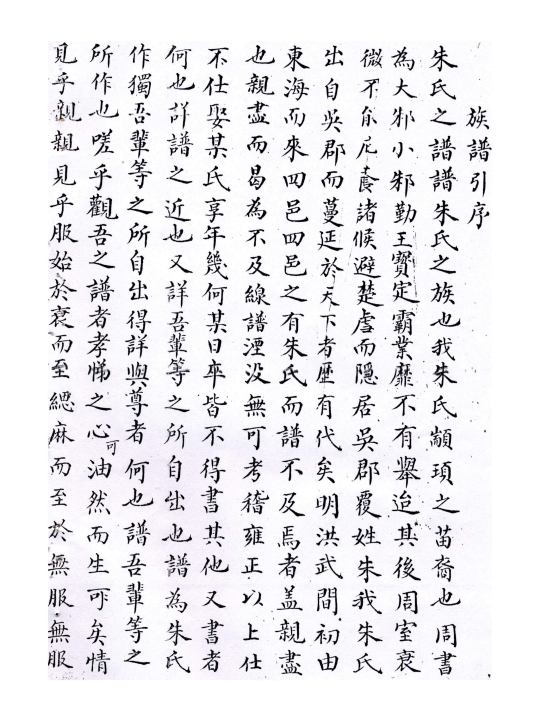 族譜引序
朱氏之譜譜朱氏之族也我朱氏顓頊之苗裔也周書
為大邾小邾勤王寳定霸業靡不有舉迨其後周室衰
微不能庇養諸候避楚虐而隱居吳郡覆姓朱我朱氏
出自吳郡而蔓延於天下者歷有代矣明洪武間初由
東海而來四邑四邑之有朱氏而譜不及焉者盖親盡
也親盡而曷為不及線譜湮没無可考稽雍正以上仕
不仕娶某氏享年幾何某日卒皆不得書其他又書者
何也詳譜之近也又詳吾輩等之所自出也譜為朱氏
作獨吾輩等之所自出得詳與尊者何也譜吾輩等之
所作也嗟乎觀吾之譜者孝悌之心可油然而生可矣情
見乎親親見乎服始於衰而至緦麻而至於無服無服